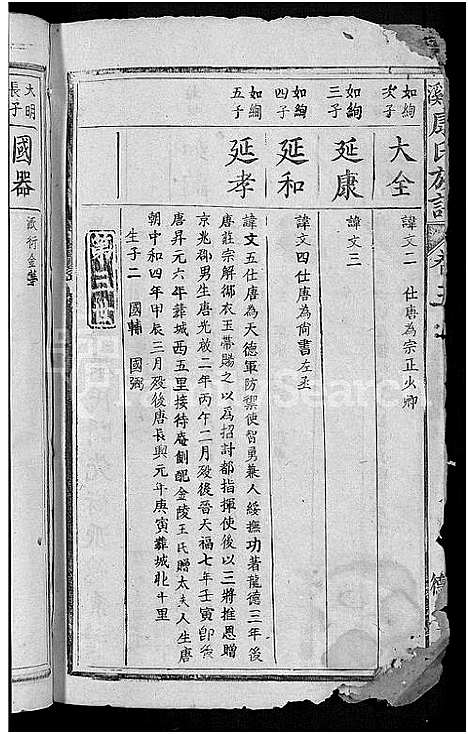 溪房氏族譜 卷
如絢次子
大全
諱文二 仕唐為宗正少卿
如絢三子
延康
諱文三
如絢四子
延和
諱文四仕唐為尚書左丞
如絢五子
延孝
諱文五仕唐為天德軍防禦使智勇兼人綏撫功著龍德三年後
唐莊宗解御衣玉帶賜之以為招討都指揮使後以三將推恩贈
京兆郡男生唐光啟二年丙午二月殁後晉天福七年壬寅即
唐昇元六年葬城西五里接待庵創配金陵王氏贈太夫人生唐
朝中和四年甲辰三月殁後唐長興元年庚寅葬城北十里
生子二 國輔 國弼
大明長子
國器
派行金